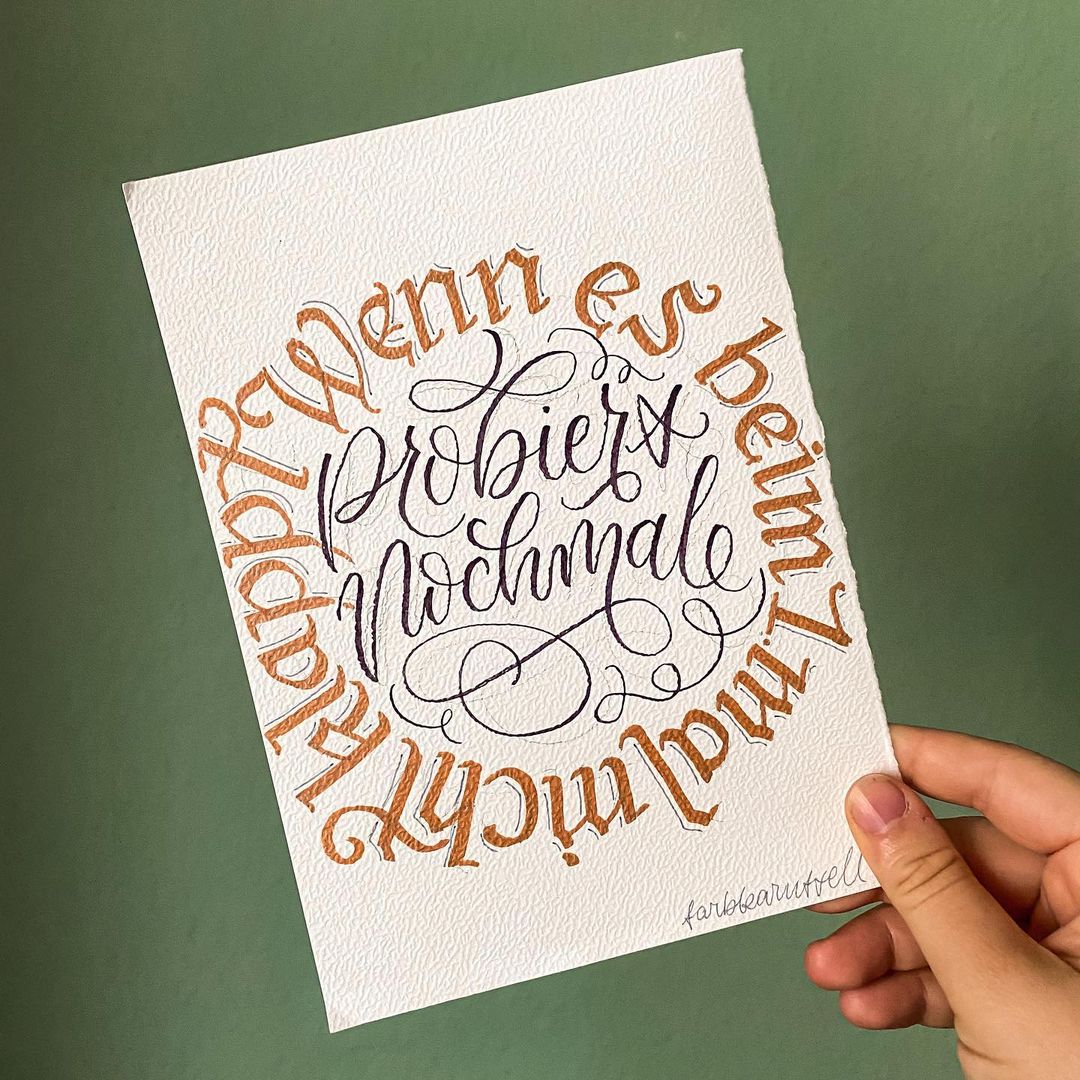 Wenn es beim 1. mal nicht klappt
probiers
Nochmal
farbkarussell